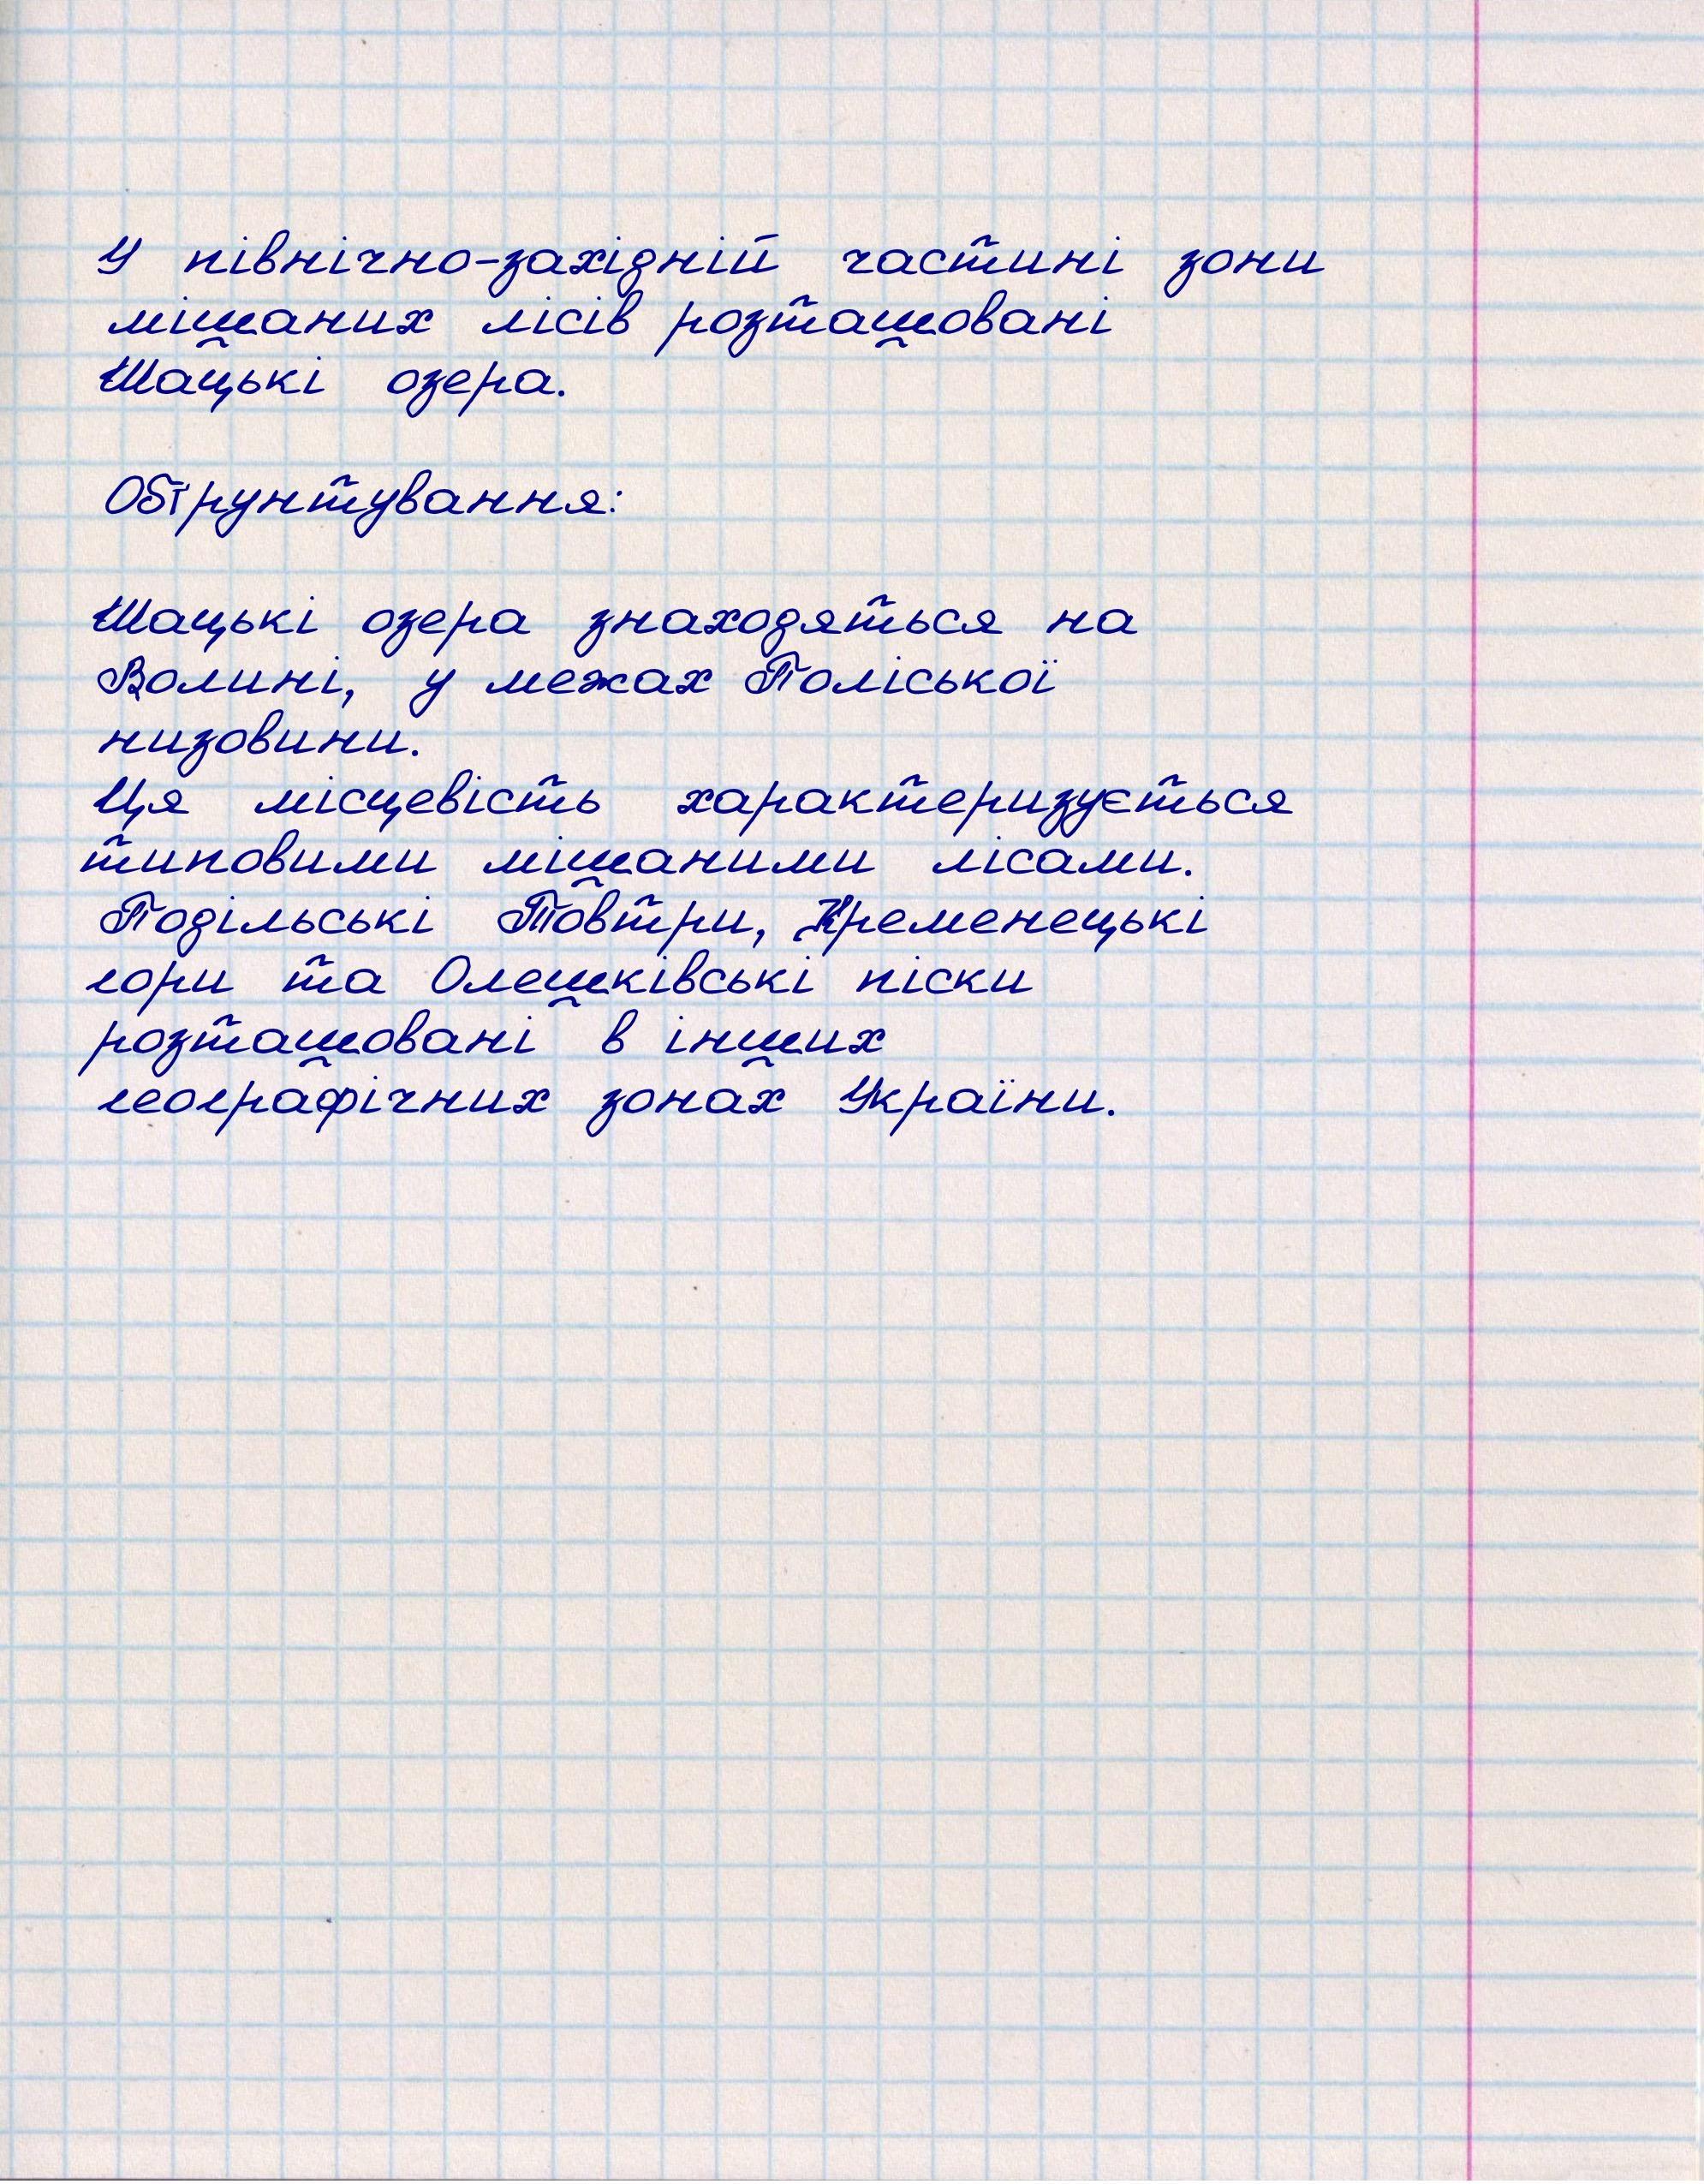 У північно-західній частині зони
мішаних лісів розташовані
Шацькі озера.
Обґрунтування:
Шацькі озера знаходяться на
Волині, у межах Поліської
низовини.
Ця місцевість характеризується
типовими мішаними лісами.
Подільські Товтри, Кременецькі
гори та Олешківські піски
розташовані в інших
географічних зонах України.